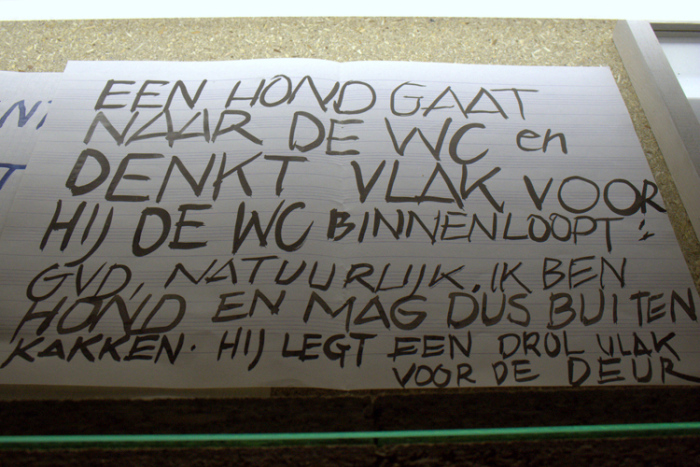 EEN HOND GAAT
NAAR DE WC en
DENKT VLAK VOOR
HIJ DE WC BINNENLOOPT :
GVD, NATUURLIJK, IK BEN
HOND EN MAG DUS BUITEN
KAKKEN. HIJ LEGT EEN DROL VLAK
VOOR DE DEUR